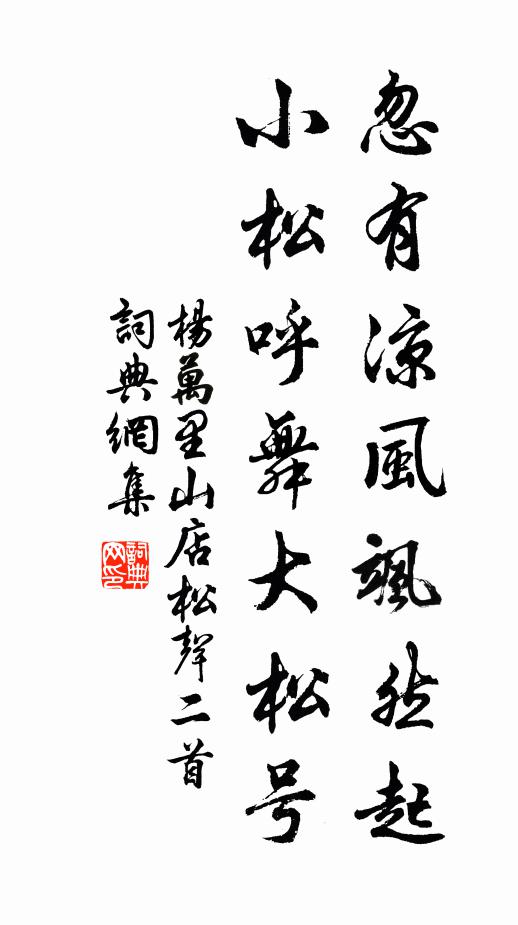 忽有涼風颯然起
小松呼舞大松号
楊萬里山店松聲二首
詞典網集
詞典网印